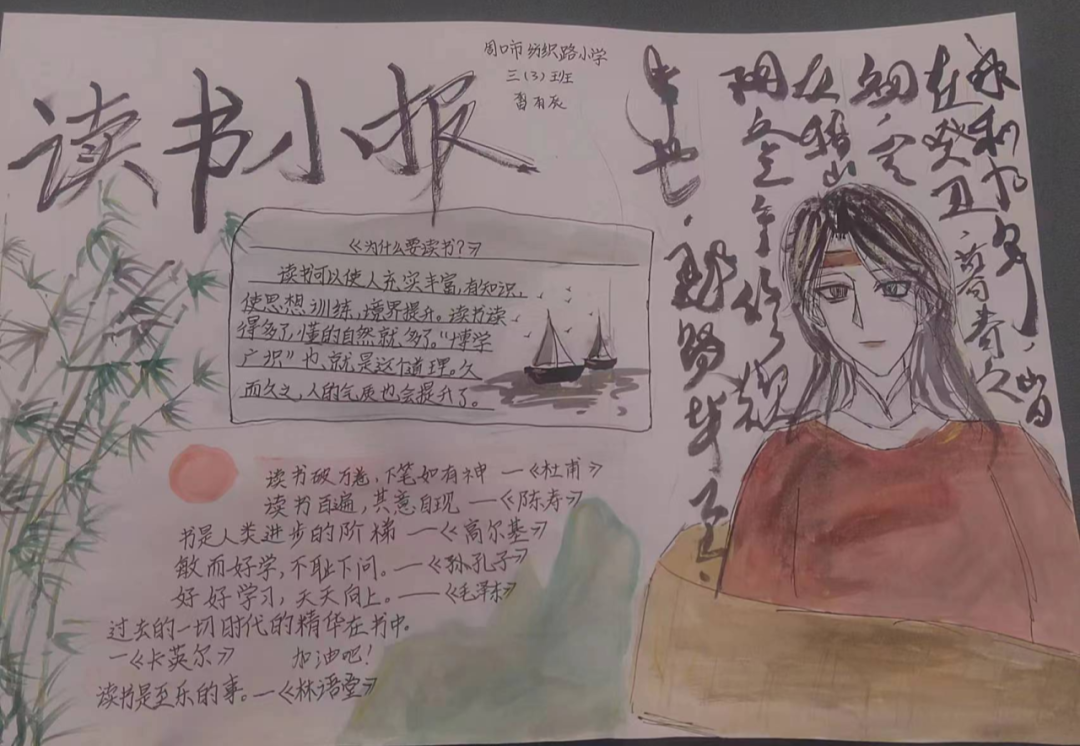 读书小报
周口市纺织路小学
三(3)班
《为什么要读书?》
读书可以使人充实丰富,有知识,
使思想训练,境界提升。读书读
得多了,懂的自然就多了,“博学
广识”也就是这个道理。久
而久之,人的气质也会提升了。
读书破万卷,下笔如有神 —《杜甫》
读书百遍,其意自现 —《陈寿》
书是人类进步的阶梯 —《高尔基》
敏而好学,不耻下问。—《孔子》
好好学习,天天向上。—《毛泽东》
过去的一切时代的精华在书中。
—《卡英尔》 加油吧!
读书是至乐的事。—《林语堂》
永和九年,岁
在癸丑,暮春之
初,会
稽山
阴兰亭修禊
事也,群贤毕至.